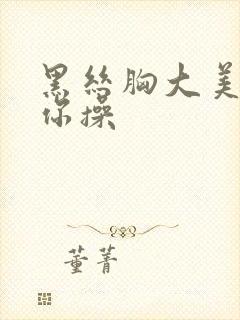 黑丝胸大美
你操
董菁